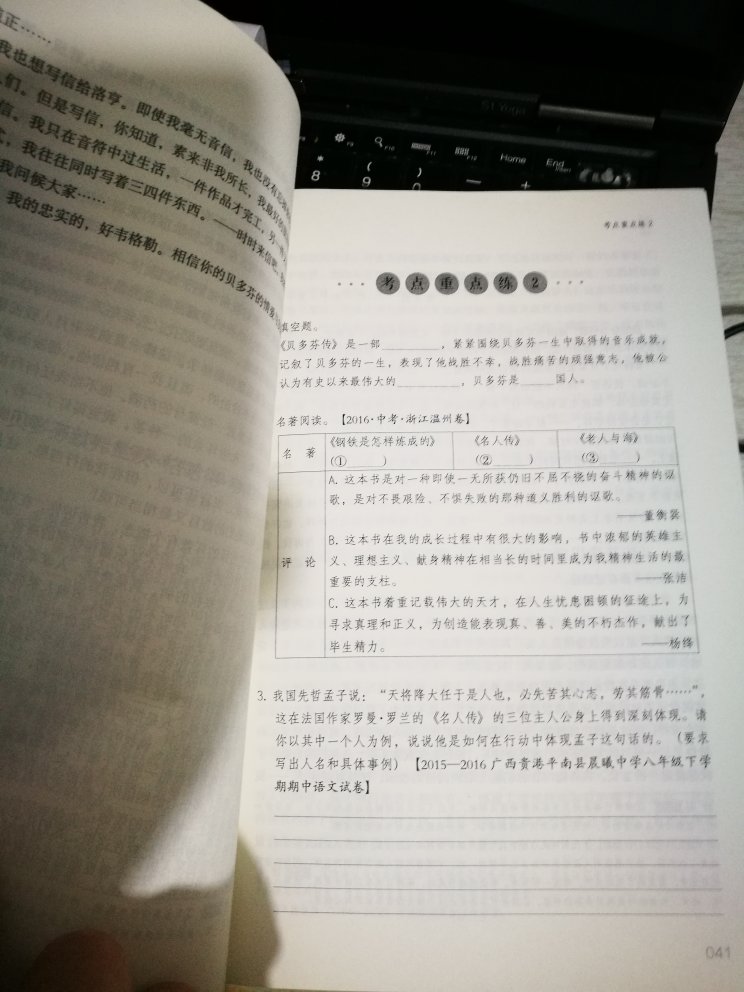 正……
我也想写信给洛亨。即使我毫无音信，我也没有
们。但是写信，你知道，素来非我所长，我最好的
信。我只在音符中过生活，一件作品才完工，另一
，我往往同时写着三四件东西。——时时来信吧，
我问候大家……
我的忠实的，好韦格勒。相信你的贝多芬的情爱
S1 Yoga
F9
F10
F11
F12
Home
End
*
8
(
9
)
0
—
+
考点重点练2
考点重点练2
填空题。
《贝多芬传》是一部________，紧紧围绕贝多芬一生中取得的音乐成就，
记叙了贝多芬的一生，表现了他战胜不幸，战胜痛苦的顽强意志，他被公
认为有史以来最伟大的________，贝多芬是____国人。
名著阅读。【2016·中考·浙江温州卷】
名 著 《钢铁是怎样炼成的》 《名人传》 《老人与海》
(①______) (②______) (③______)
评 论
A. 这本书是对一种即使一无所获仍旧不屈不挠的奋斗精神的讴
歌，是对不畏艰险、不惧失败的那种道义胜利的讴歌。
——董衡巽
B. 这本书在我的成长过程中有很大的影响，书中浓郁的英雄主
义、理想主义、献身精神在相当长的时间里成为我精神生活的最
重要的支柱。 ——张洁
C. 这本书着重记载伟大的天才，在人生忧患困顿的征途上，为
寻求真理和正义，为创造能表现真、善、美的不朽杰作，献出了
毕生精力。 ——杨绛
3. 我国先哲孟子说：“天将降大任于是人也，必先苦其心志，劳其筋骨……”，
这在法国作家罗曼·罗兰的《名人传》的三位主人公身上得到深刻体现。请
你以其中一个人为例，说说他是如何在行动中体现孟子这句话的。（要求
写出人名和具体事例）【2015—2016广西贵港平南县晨曦中学八年级下学
期期中语文试卷】
041